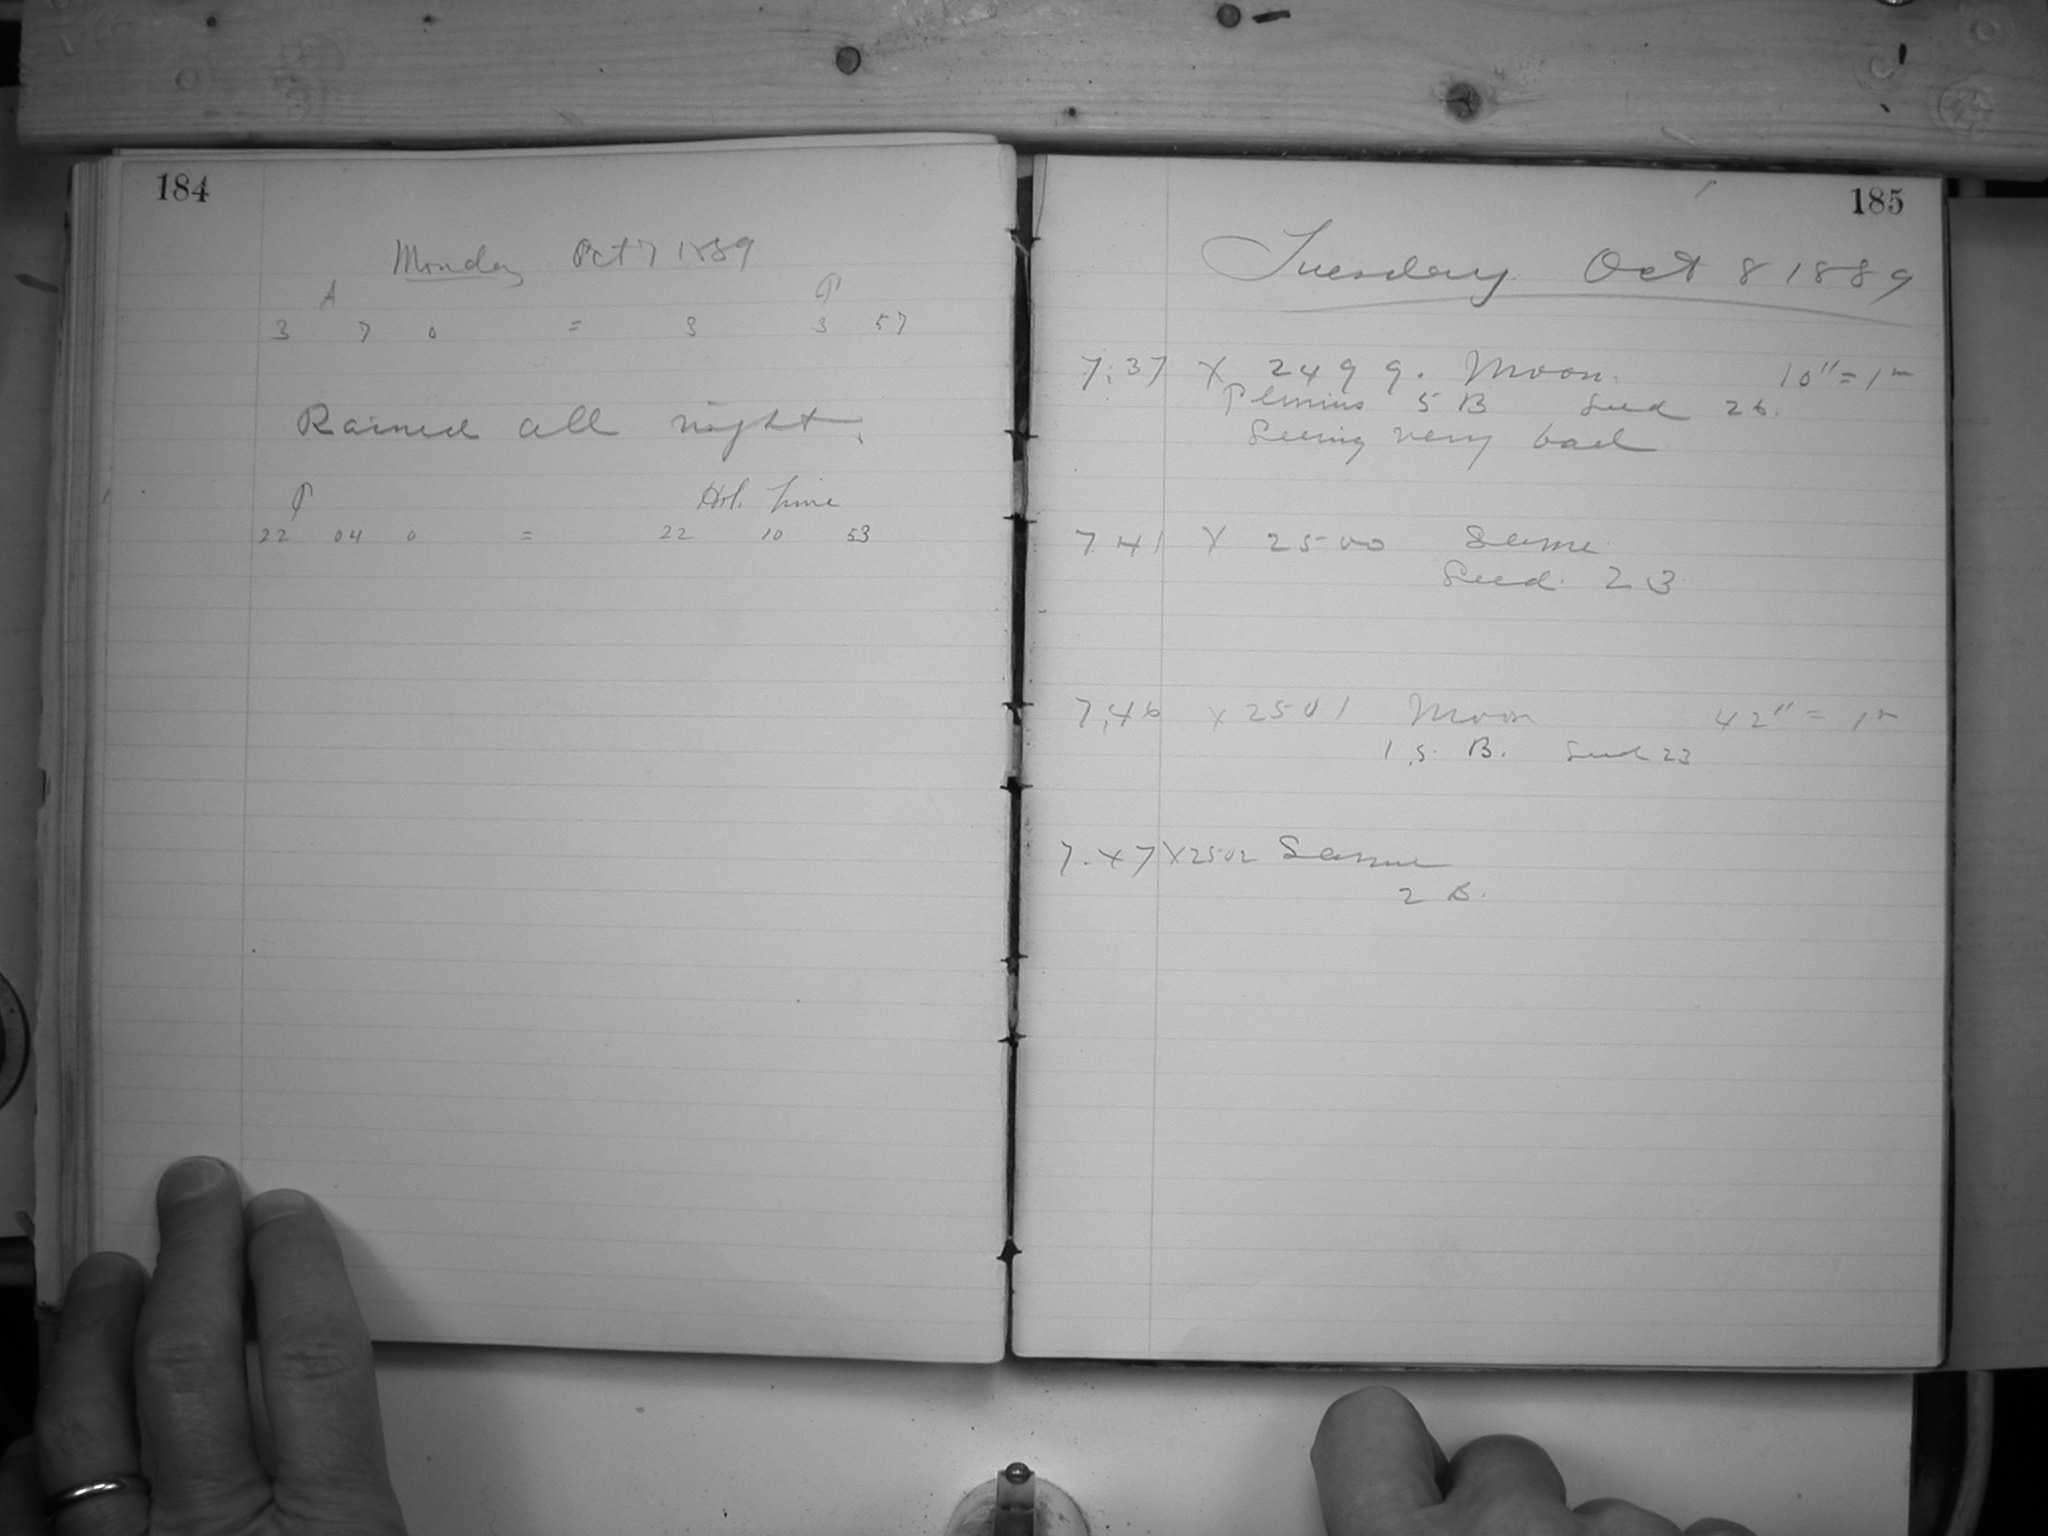 184
Monday Oct 7 1889
A P
3 7 0 = 3 3 57
Rained all night.
P Hol. Time
22 04 0 = 22 10 53
185
Tuesday Oct 8 1889
7.37 X 2499. Moon. 10" = 1m
Plinius 5 B Seed 26.
Seeing very bad
7 41 X 2500 Same
Seed. 23
7.46 X 2501 Moon 42" = 1m
1.5. B. Seed 23
7.47 X 2502 Same
2 B.